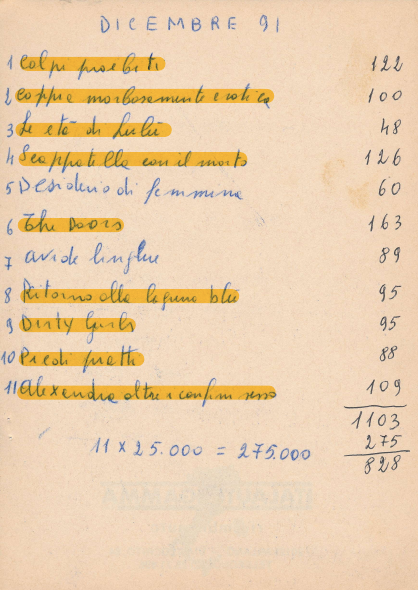 DICEMBRE 91
1 Colpi proibiti 122
2 coppia morbosamente erotica 100
3 Le età di Lulù 48
4 Scappatella con il morto 126
5 Desiderio di femmina 60
6 The Doors 163
7 avide lingue 89
8 Ritorno alla laguna blu 95
9 Dirty Girls 95
10 Piedi piatti 88
11 Alexandra oltre i confini sesso 109
1103
11 x 25.000 = 275.000 275
828